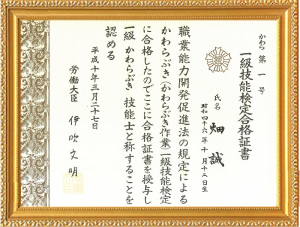 かわら 第一号
一級技能検定合格証書
氏名 畑 誠
昭和四十六年十月十二日生
職業能力開発促進法の規定による
かわらぶき(かわらぶき作業)一級技能検定
に合格したのでここに合格証書を授与し
一級かわらぶき技能士と称することを
認める
平成十年三月二十七日
労働大臣 伊吹文明